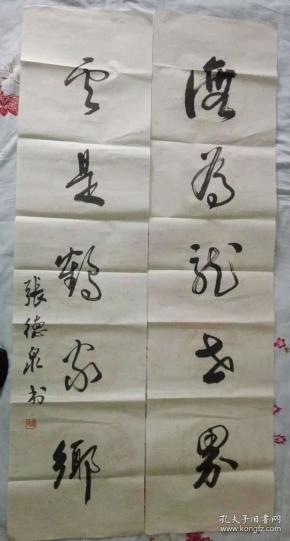 海為龍世界
雲是鶴家鄉
張德泉书
孔夫子旧书网